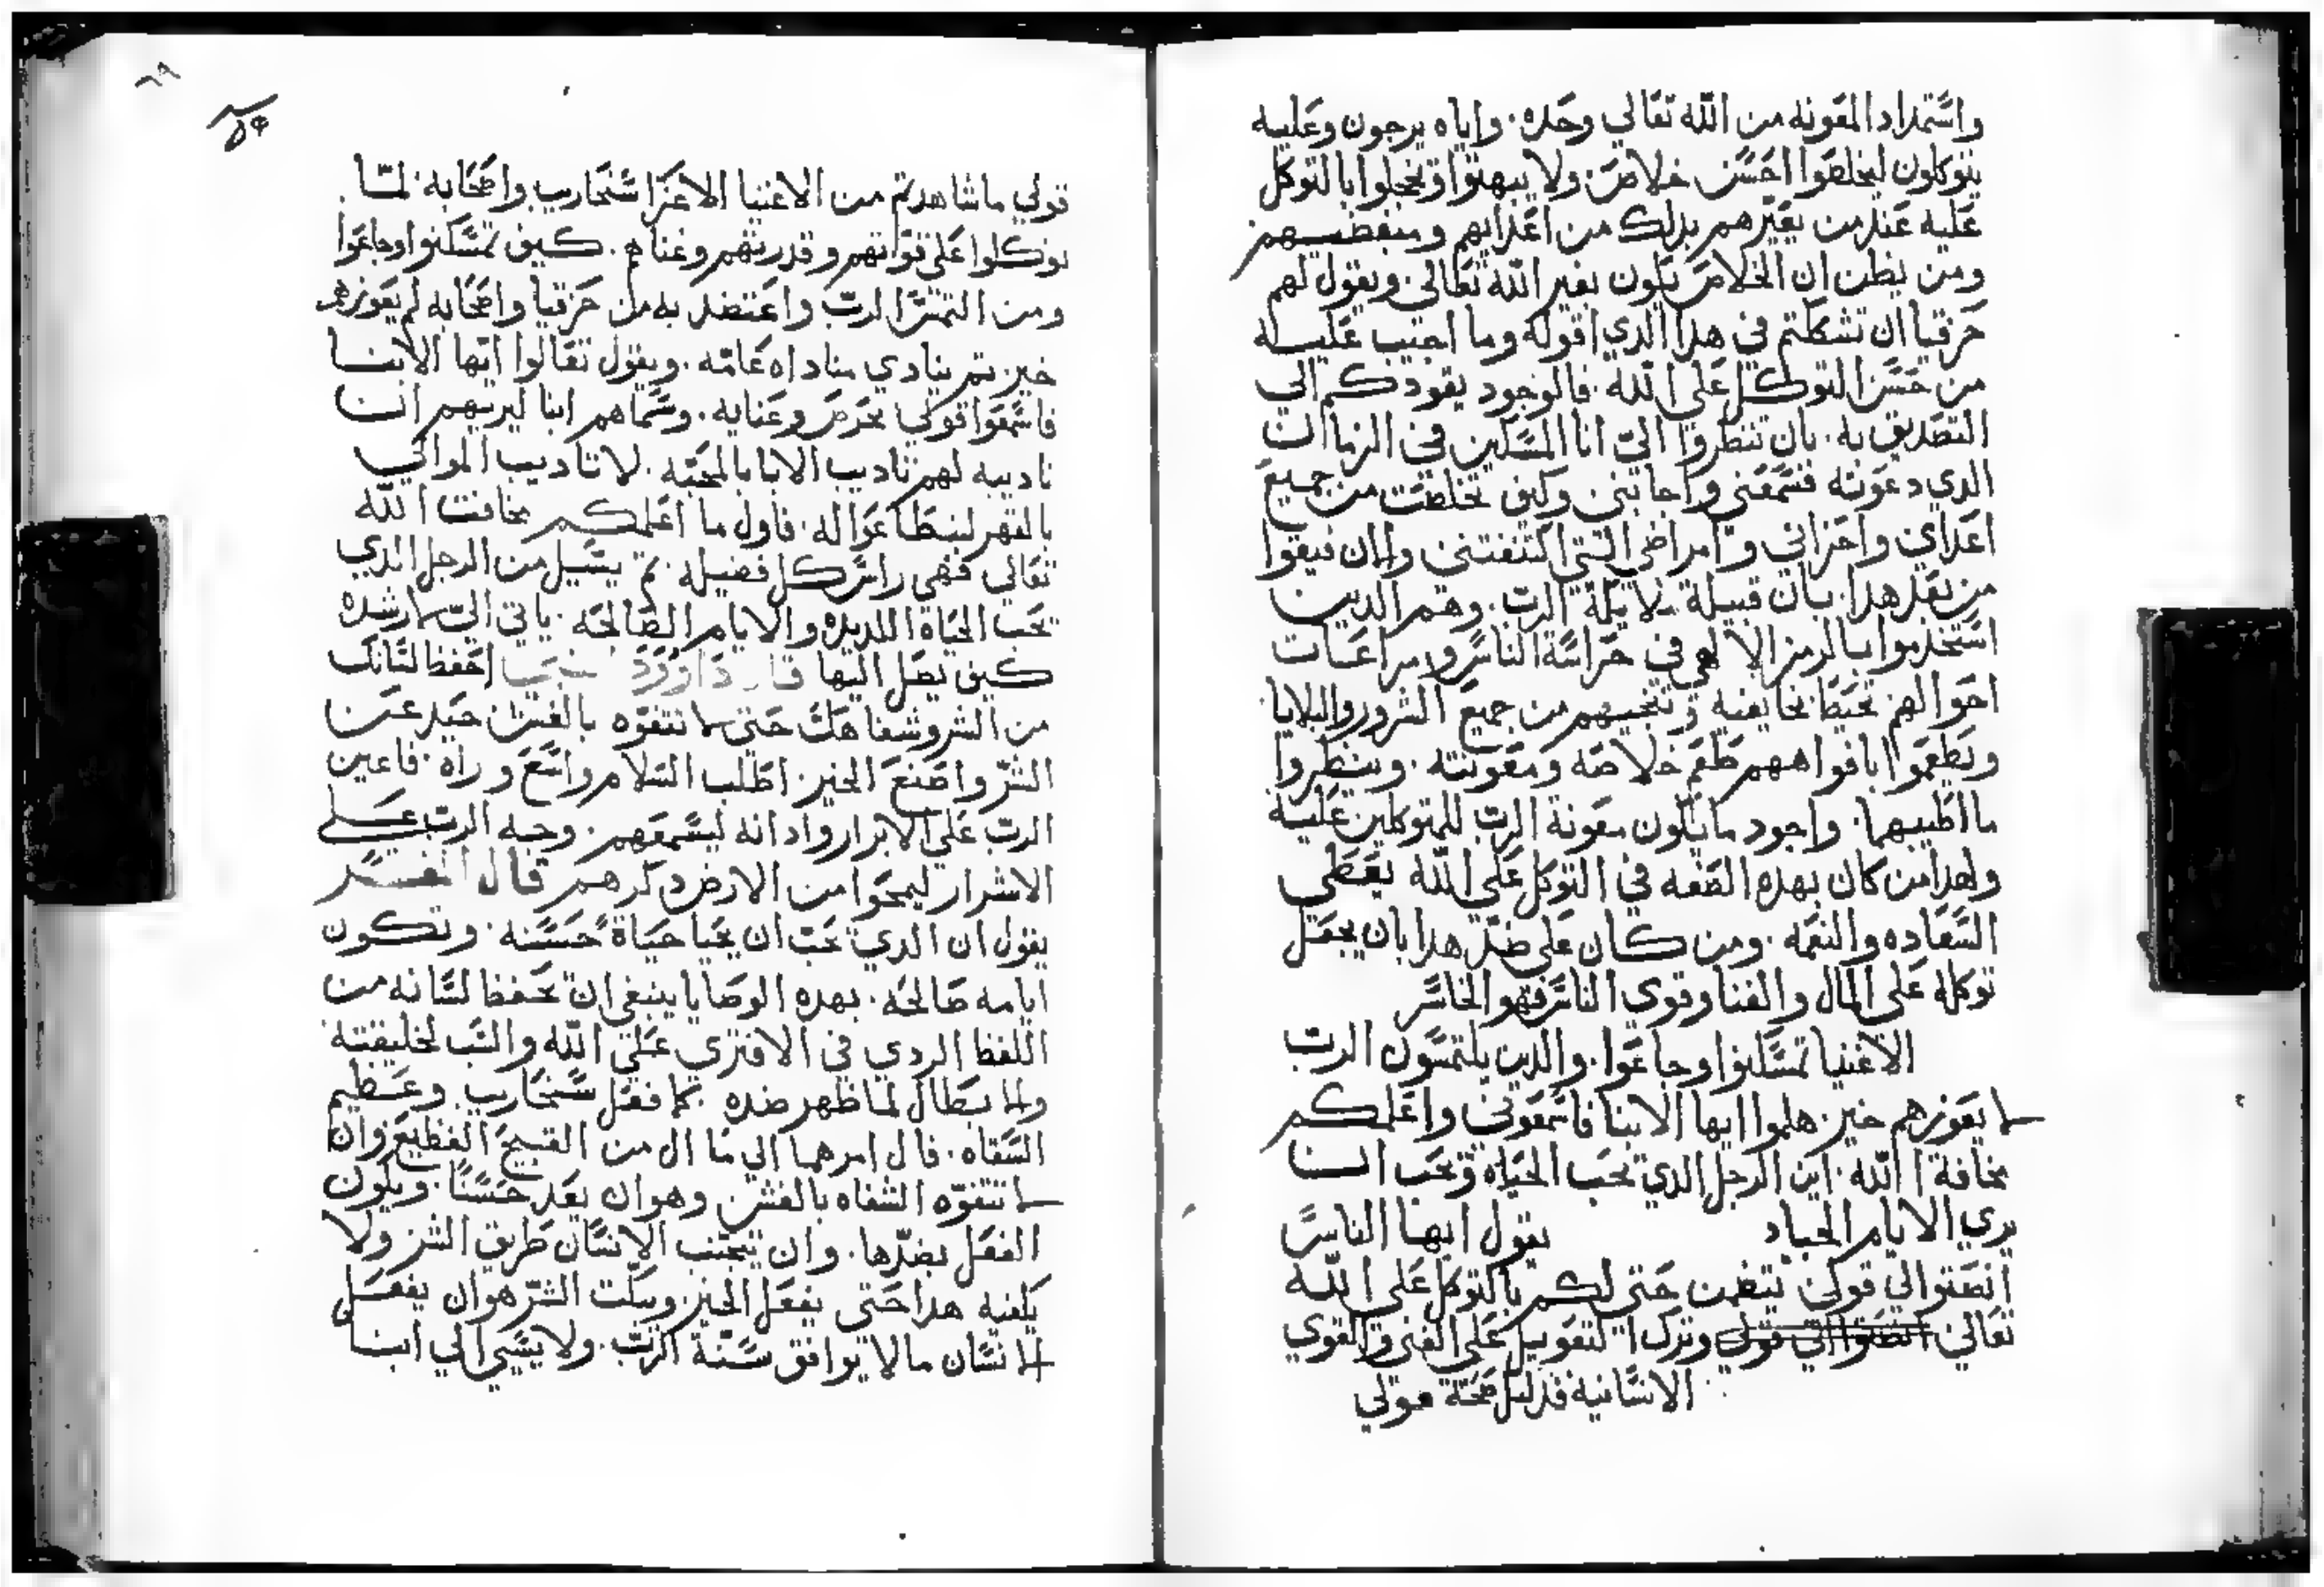 واستمداد المعونه من الله تعالي وحده. واياه يرجون وعليه
يتوكلون ليخلصوا احسن خلاص. ولا يبهتوا وتخجلوا بالتوكل
عليه عند من يعيرهم بدلك من اعدايهم ومبغضيهم
ومن يظن ان الخلاص يكون بغير الله تعالى. ويقول لهم
حزقيا ان تشككتم في هدا الدي اقوله وما اجيب عليه
من حسن التوكل علي الله. فالوجود يقودكم الي
التصديق به. بان تنظروا الىّ انا المسكين في الزمان
الدي دعوته فسمعني واجابني. وكيف تخلصت من جميع
اعداي واحزاني وامراضي التي اكتنفتني والان فيقوا
من بعد هدا. بان قبيلة ملايكة الرب. وهم الدين
استخدموا بالرمز الالهي في حراسة الناس ومراعات
احوالهم تحيط بخايفيه وتنجيهم من جميع الشرور والبلايا.
وتطعموا بافواههم طعم خلاصه ومعونته. وينظروا
ما اطيبهما. واجود ما يكون معونة الرب للمتوكلين عليه
ولهدا من كان بهده الصفه في التوكل علي الله يعطي
السعاده والنعمه. ومن كان على ضدّ هدا بان يجعل
توكله على المال والغنا وقوي الناس فهو الخاسر
الاغنيا تمسكنوا وجاعوا. والدين يلتمسون الربّ
لا يعوزهم خير. هلموا ايها الابنا فاسمعوني واعلمكم
مخافة الله. اين الرجل الدي يحب الحياه ويحب ان
يري الايام الجياد يقول ايها الناس
انصتوا الي قولي تنتفعن حتى لكم بالتوكل على الله
تعالي انصتوا الي قولي وترك التعويل على الغنى والقوي
الانسانيه فدليل صحة قولي
قولي ما شاهدتم من الاغنيا الاعزا سنحاريب واصحابه. لما
توكلوا على قواتهم وقدرتهم وغناهم. كيف تمسكنوا وجاعوا
ومن التمس الرب واعتضد به مل حزقيا واصحابه لم يعوزهم
خير. تم ينادي مناداه عامه. ويقول تعالوا ايها الابنا
فاسمعوا قولي بحرص وعنايه. وسماهم ابنا ليريهم ان
تاديبه لهم تاديب الابا بالمحبّه. لا تاديب الموالي
بالقهر لينطاعوا له. فاول ما اعلمكم مخافت الله
تعالي فهي راس كل فضيله. تم يسيل من الرجل الدي
يحب الحياة اللديده والايام الصالحه. ياتي الىّ لارشده
كيف يصل اليها قال داوود احفظ لسانك
من الشر وشفاهك حتى لا تتفوّه بالغش حيد عن
الشرّ واصنع الخير. اطلب السلام واسع وراه. فاعين
الربّ على الابرار وادانه ليسمعهم. وجه الرب على
الاشرار ليمحوا من الارض دكرهم قال المفسر
يقول ان الدي يحبّ ان يحيا حياة حسنه. وتكون
ايامه صالحه. بهده الوصايا ينبغي ان يحفظ لسانه من
اللفظ الردي في الافتري على الله والسب لخليقته
ولا يطال لما ظهر ضده كما فعل سنحاريب. وعظيم
السقاه. فال امرهما الي ما ال من القبيح الفظيع. وان
لا تتفوّه الشفاه بالغش وهو ان يعد حسنًا. ويكون
الفعل بضدّها. وان يتجنب الانسان طريق الشر ولا
يكفيه هدا حتى يفعل الخير. ويبكت الشرّ هو ان يفعل
الانسان ما لا يوافق سنّة الربّ. ولا يسي الي ابنا